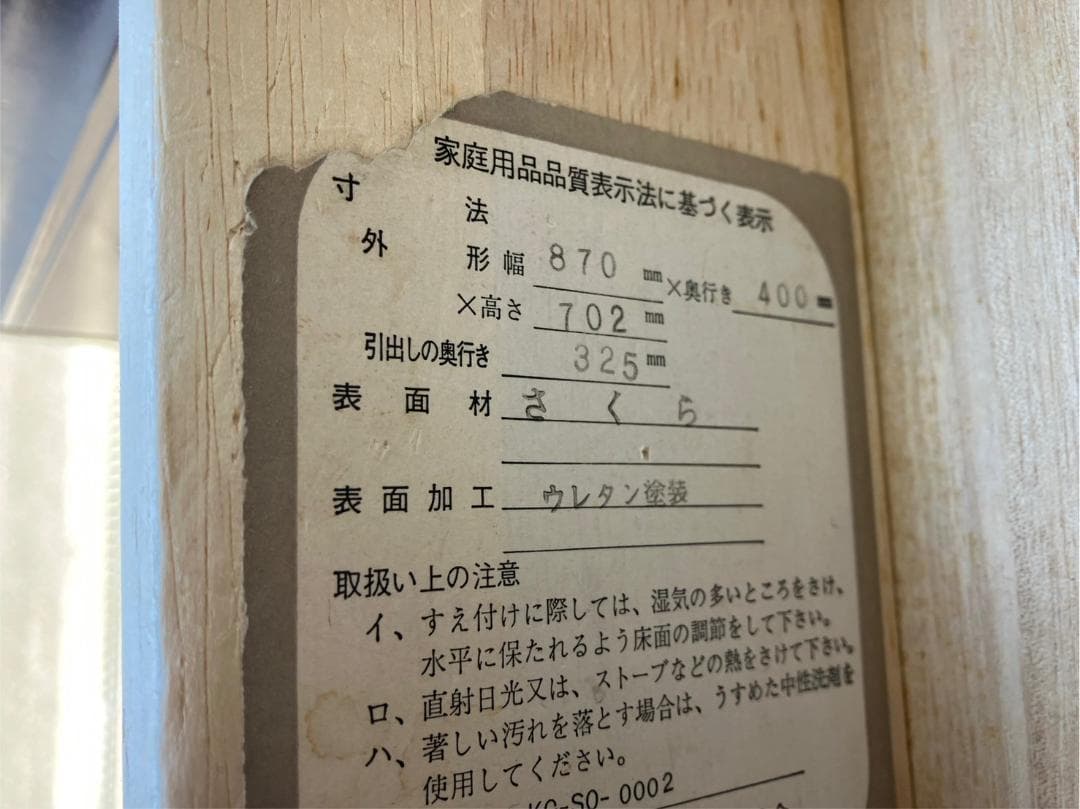 家庭用品品質表示法に基づく表示
寸 法
外 形 幅 870 mm ×奥行き 400 mm
×高さ 702 mm
引出しの奥行き 325 mm
表 面 材 さ く ら
表 面 加 工 ウレタン塗装
取扱い上の注意
イ、すえ付けに際しては、湿気の多いところをさけ、
水平に保たれるよう床面の調節をして下さい。
ロ、直射日光又は、ストーブなどの熱をさけて下さい。
ハ、著しい汚れを落とす場合は、うすめた中性洗剤を
使用してください。
KG-SO-0002